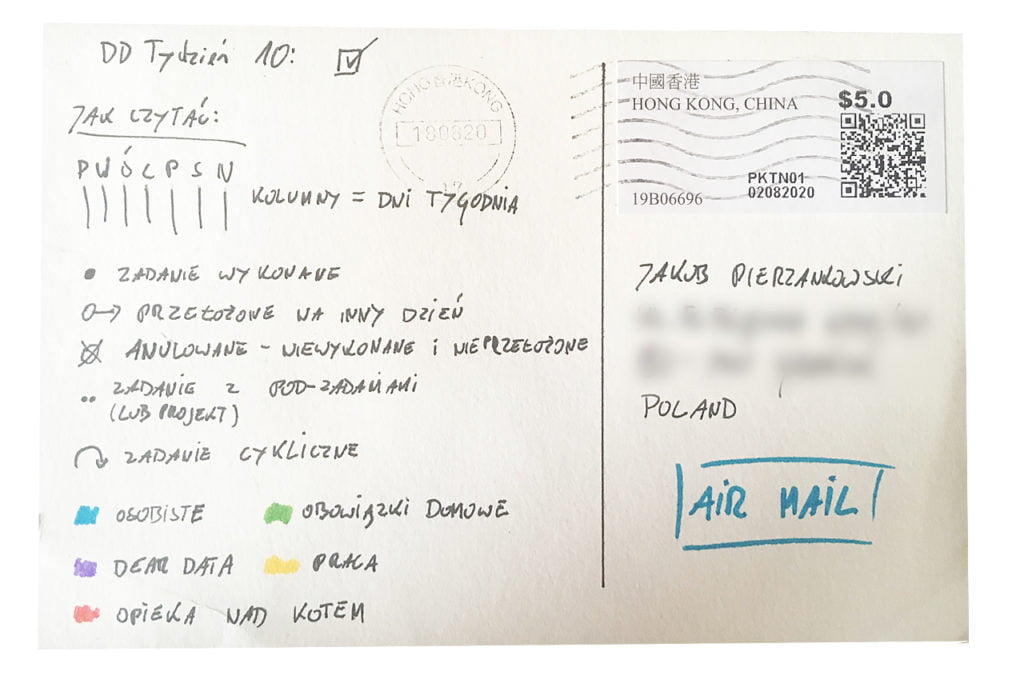 DD Tydzień 10:
JAK CZYTAĆ:
P W Ś C P S N
KOLUMNY = DNI TYGODNIA
ZADANIE WYKONANE
PRZEŁOŻONE NA INNY DZIEŃ
ANULOWANE - NIEWYKONANE I NIEPRZEŁOŻONE
ZADANIE Z POD-ZADANIAMI
(LUB PROJEKT)
ZADANIE CYKLICZNE
OSOBISTE
OBOWIĄZKI DOMOWE
DEAR DATA
PRACA
OPIEKA NAD KOTEM
HONG KONG
中國香港
HONG KONG, CHINA
$5.0
PKTN01
19B06696
02082020
JAKUB PIERZANKOWSKI
POLAND
AIR MAIL